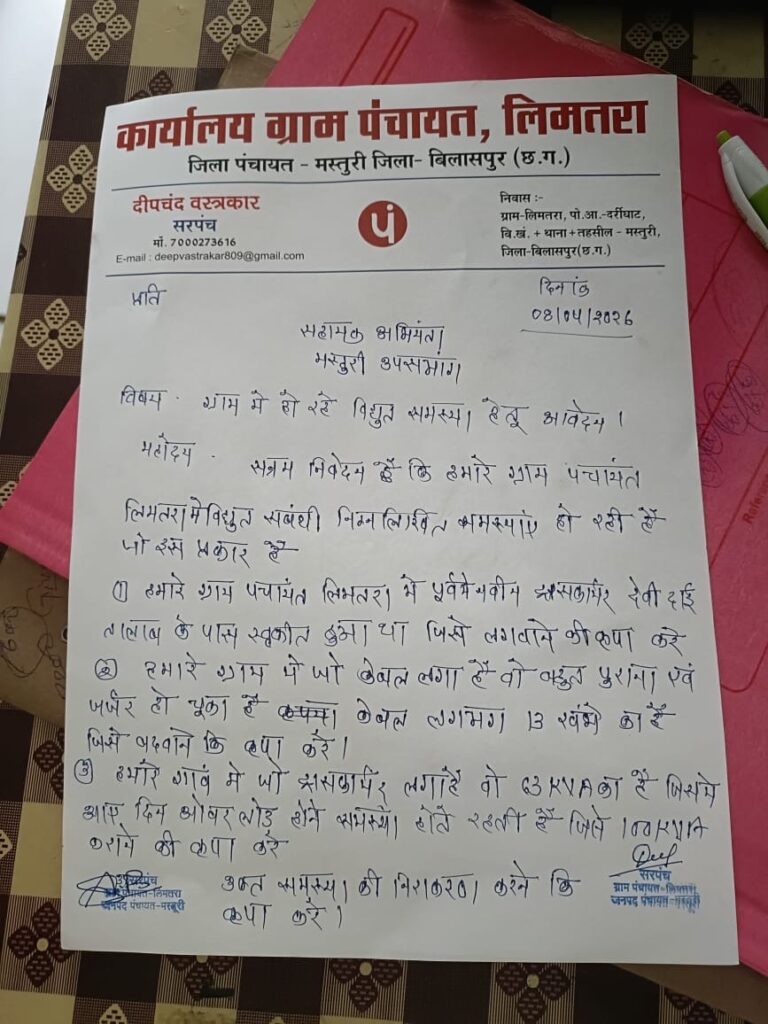 कार्यालय ग्राम पंचायत, लिमतरा
जिला पंचायत - मस्तुरी जिला- बिलासपुर (छ.ग.)
दीपचंद वस्त्रकार
सरपंच
मों. 7000273616
E-mail : deepvastrakar809@gmail.com
पं
निवास :-
ग्राम-लिमतरा, पो.आ.-दर्रीघाट,
वि.खं. + थाना+तहसील - मस्तुरी,
जिला-बिलासपुर(छ.ग.)
प्रति
दिनांक
08/04/2026
सहायक अभियंता
मस्तुरी उपसभांग
विषय - ग्राम मे हो रहे विद्युत समस्या हेतू आवेदन ।
महोदय -
सन्रम निवेदन है कि हमारे ग्राम पंचायत
लिमतरा मे विद्युत सबंधी निम्नलिखित समस्याएं हो रही है
जो इस प्रकार है
① हमारे ग्राम पंचायत लिमतरा मे पूर्व मे नवीन ट्रासफार्मर देवी दाई
तालाब के पास स्वीकृत हुआ था जिसे लगवाने की कृपा करे
② हमारे ग्राम मे जो केबल लगा है वो बहुत पुराना एवं
जर्जर हो चूका है केबल लगभग 13 खंभे का है
जिसे बदवाने कि कृपा करें ।
③ हमारे गावं मे जो ट्रासफार्मर लगा है वो 63 KVA का है जिसमे
आए दिन ओवर लोड होने समस्या होते रहती है जिसे 100 KVA
कराने की कृपा करे
उक्त समस्या की निराकरण करने कि
कृपा करें ।
उपसरपंच
ग्राम पंचायत-लिमतरा
जनपद पंचायत-मस्तूरी
सरपंच
ग्राम पंचायत-लिमतरा
जनपद पंचायत-मस्तूरी